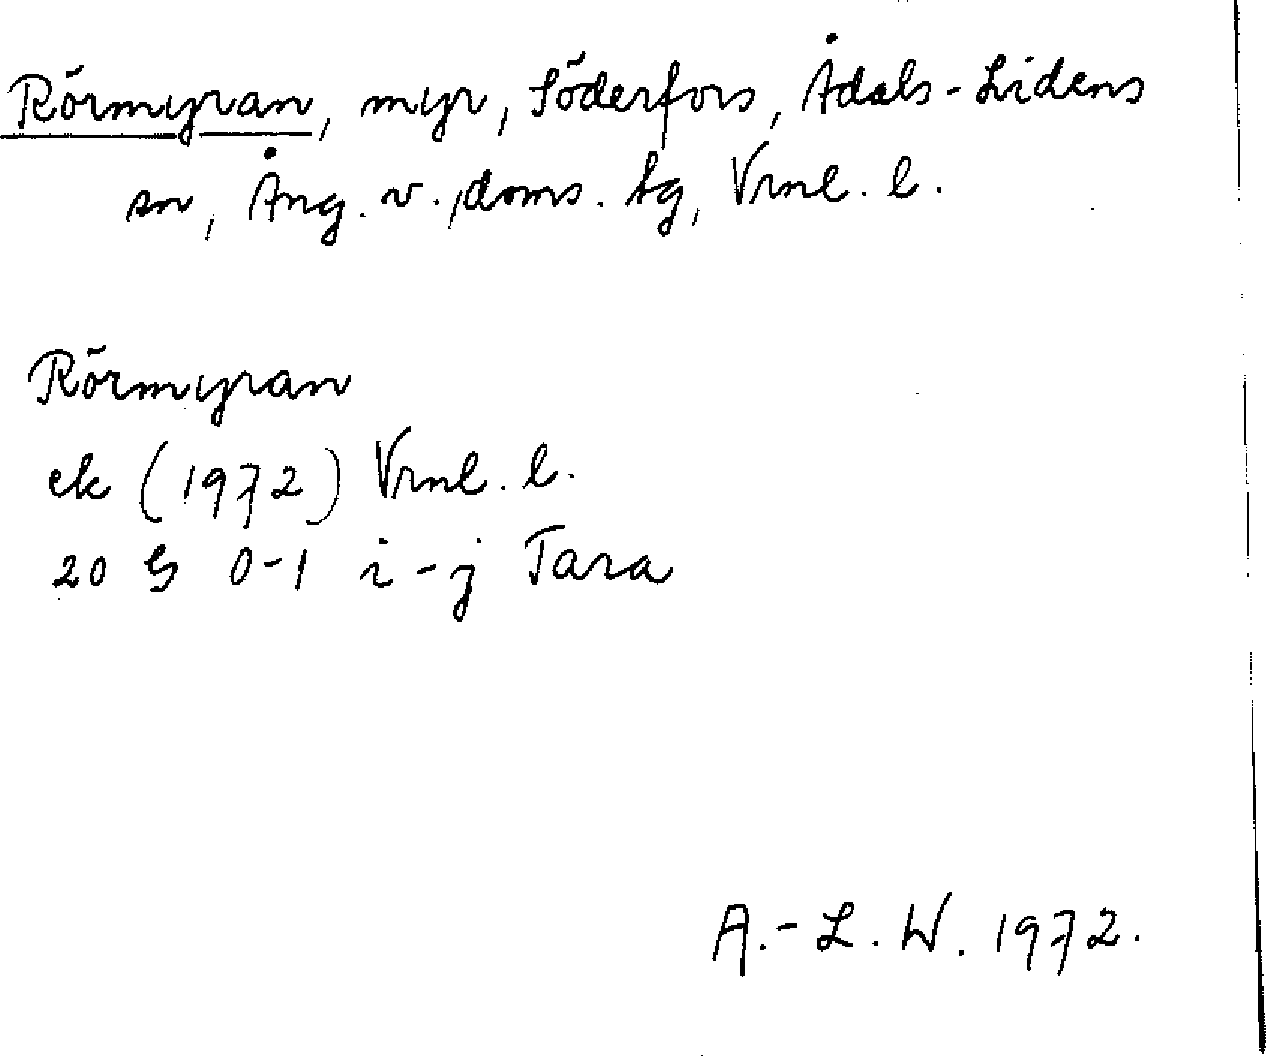 Rörmyran, myr, Söderfors, Ådals-Lidens
sn, Ång. v. doms. tg, Vrnl. l.
Rörmyran
ek (1972) Vrnl. l.
20 G 0-1 i-j Tara
A.-L. W. 1972.